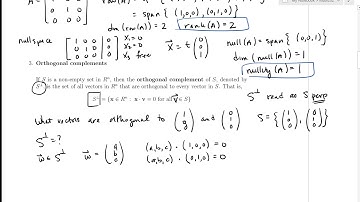 A = ( 1 0 0
0 1 0
0 0 0 )
= span { (1,0,0), (0,1,0) }
dim (row(A)) = 2 rank(A) = 2
nullspace [ 1 0 0 | 0 x₁ = 0
0 1 0 | 0 x₂ = 0
0 0 0 | 0 ] x₃ free
x⃗ = t ( 0 0 1 )
null(A) = span { (0,0,1) }
dim (null(A)) = 1
nullity (A) = 1
3. Orthogonal complements
If S is a non-empty set in Rⁿ, then the orthogonal complement of S, denoted by
S⊥ is the set of all vectors in Rⁿ that are orthogonal to every vector in S. That is,
S⊥ = {x ∈ Rⁿ : x · v = 0 for all v ∈ S}
S⊥ read as S perp
What vectors are orthogonal to ( 1 0 0 ) and ( 0 1 0 ) S = { ( 1 0 0 ), ( 0 1 0 ) }
S⊥ = ?
w⃗ ∈ S⊥ w⃗ = ( a b c ) (a,b,c) · (1,0,0) = 0
(a,b,c) · (0,1,0) = 0